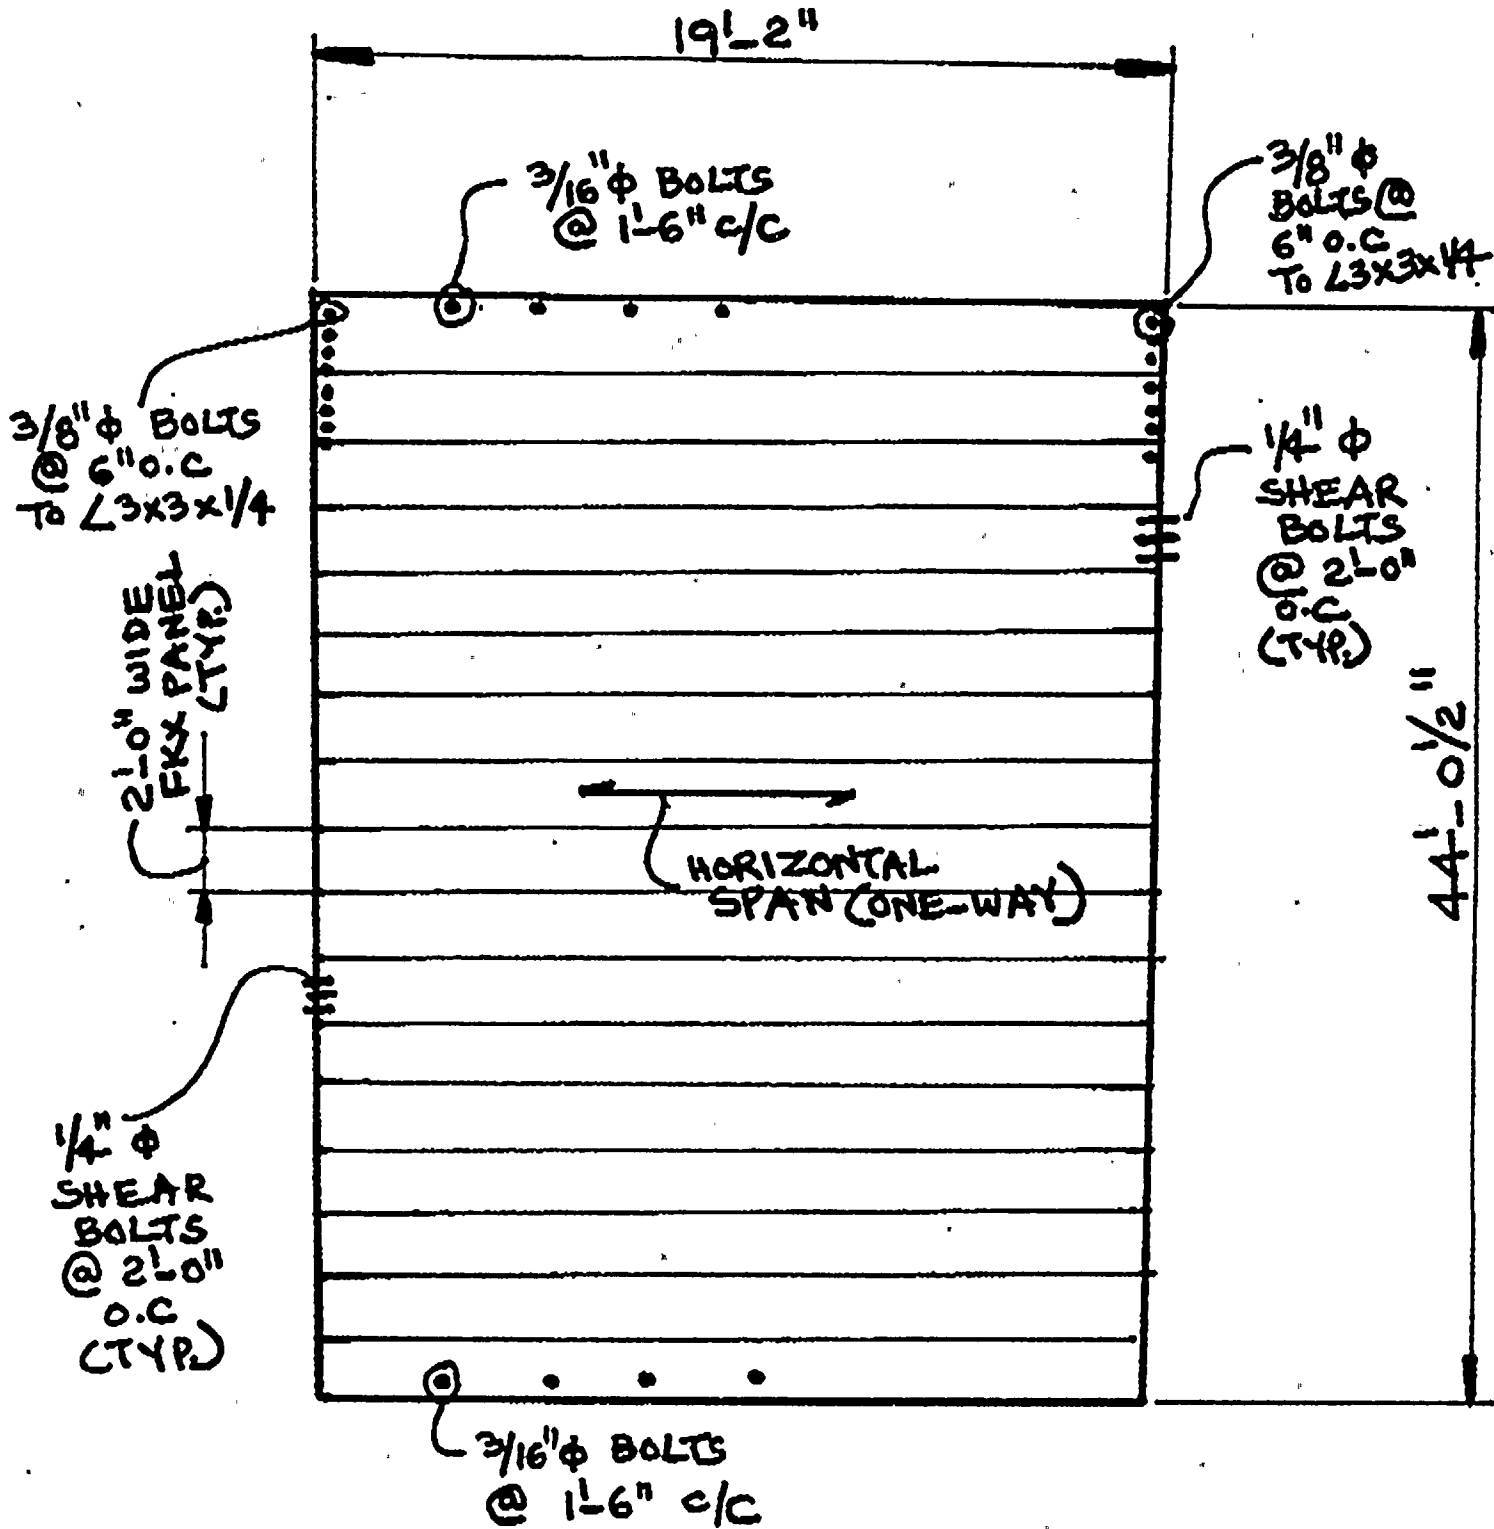 19'-2"
3/16"ϕ BOLTS
@ 1'-6" c/c
3/8"ϕ
BOLTS @
6" O.C
TO ∠3x3x1/4
3/8"ϕ BOLTS
@ 6"O.C
TO ∠3x3x1/4
1/4" ϕ
SHEAR
BOLTS
@ 2'-0"
O.C
(TYP.)
2'-0" WIDE
FKX PANEL
(TYP.)
44'-0½"
HORIZONTAL
SPAN (ONE-WAY)
1/4" ϕ
SHEAR
BOLTS
@ 2'-0"
O.C
(TYP.)
3/16"ϕ BOLTS
@ 1'-6" c/c